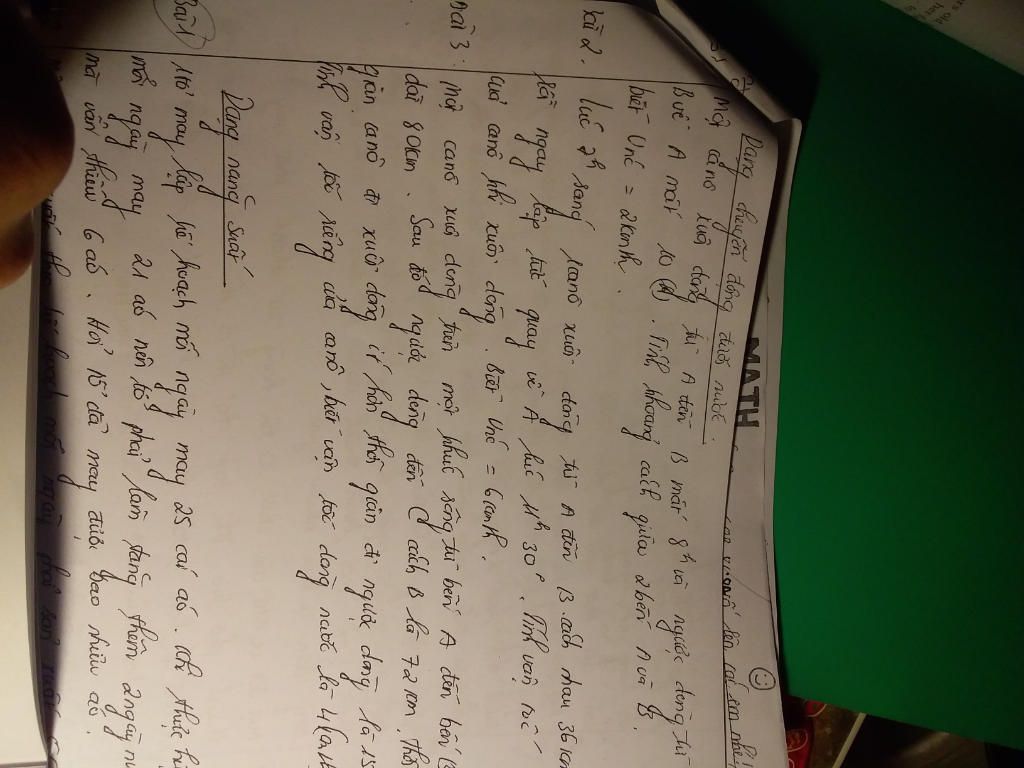 MATH
Dạng chuyển động dưới nước.
Một canô xuôi dòng từ A đến B mất 8h và ngược dòng từ
B về A mất 10 (h). Tính khoảng cách giữa 2 bến A và B.
biết Vnc = 2km/h.
Bài 2.
Lúc 7h sáng canô xuôi dòng từ A đến B cách nhau 36km
rồi ngay lập tức quay về A lúc 11h 30'. Tính vận tốc
của canô khi xuôi dòng. Biết Vnc = 6km/h.
Bài 3:
Một canô xuôi dòng trên một khúc sông từ bến A đến bến
dài 80km. Sau đó ngược dòng đến C cách B là 72km, thời
gian canô đi xuôi dòng ít hơn thời gian đi ngược dòng là 15
Tính vận tốc riêng của canô, biết vận tốc dòng nước là 4
Dạng năng suất
Bài 1
1 tổ may lập kế hoạch mỗi ngày may 25 cái áo.
mỗi ngày may 21 áo nên tổ phải làm tăng thêm 2 ngày
mà vẫn thiếu 6 áo. Hỏi tổ đã may được bao nhiêu áo.
kế hoạch mỗi ngày phải sản xuất